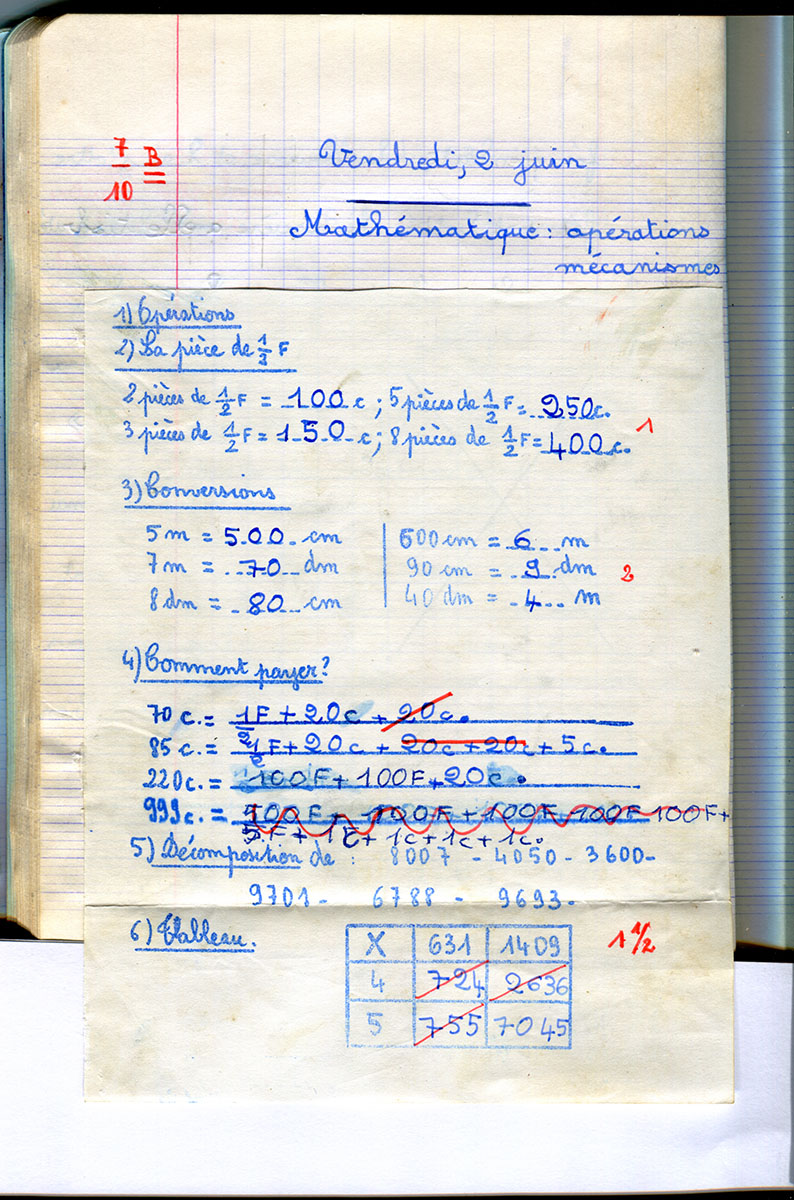 7
10
B
Vendredi, 2 juin
Mathématique : opérations
mécanismes
1) Opérations
2) La pièce de 1/2 F
2 pièces de 1/2 F = 100 c ; 5 pièces de 1/2 F = 250 c.
3 pièces de 1/2 F = 150 c ; 8 pièces de 1/2 F = 400 c.
1
3) Conversions
5 m = 500 cm | 600 cm = 6 m
7 m = 70 dm | 90 cm = 9 dm
8 dm = 80 cm | 40 dm = 4 m
2
4) Comment payer ?
70 c. = 1/2 F + 20c + 20c.
85 c. = 1/2 F + 20c + 20c + 20c + 5c.
220c. = 100F + 100F + 20c.
999c. = 100F + 100F + 100F 100F 100F +
F + 1F + 1c + 1c + 1c.
5) Décomposition de : 8007 - 4050 - 3600 -
9701 - 6788 - 9693.
6) Tableau.
X 631 1409
4 724 2636
5 755 7045
1 1/2